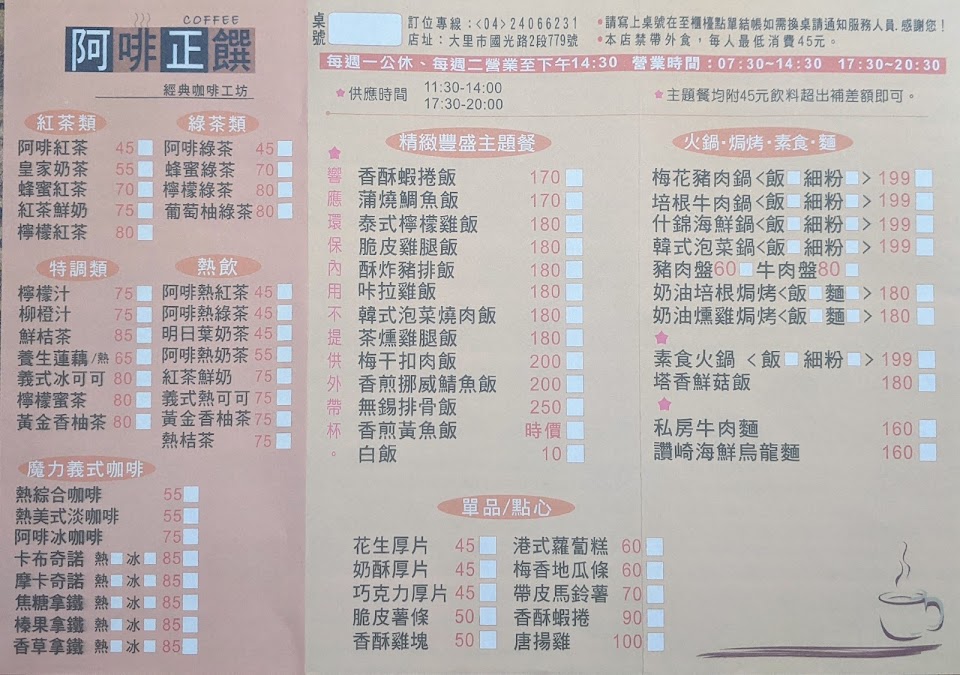 COFFEE
阿啡正饌
經典咖啡工坊
桌號
訂位專線：<04>24066231
店址：大里市國光路2段779號
•請寫上桌號在至櫃檯點單結帳如需換桌請通知服務人員.感謝您！
•本店禁帶外食，每人最低消費45元。
每週一公休、每週二營業至下午14:30 營業時間：07:30~14:30 17:30~20:30
★供應時間 11:30-14:00
17:30-20:00
★主題餐均附45元飲料超出補差額即可。
紅茶類
阿啡紅茶 45
皇家奶茶 55
蜂蜜紅茶 70
紅茶鮮奶 75
檸檬紅茶 80
綠茶類
阿啡綠茶 45
蜂蜜綠茶 70
檸檬綠茶 80
葡萄柚綠茶 80
特調類
檸檬汁 75
柳橙汁 75
鮮桔茶 85
養生蓮藕/熱 65
義式冰可可 80
檸檬蜜茶 80
黃金香柚茶 80
熱飲
阿啡熱紅茶 45
阿啡熱綠茶 45
明日葉奶茶 45
阿啡熱奶茶 55
紅茶鮮奶 75
義式熱可可 75
黃金香柚茶 75
熱桔茶 75
魔力義式咖啡
熱綜合咖啡 55
熱美式淡咖啡 55
阿啡冰咖啡 75
卡布奇諾 熱 冰 85
摩卡奇諾 熱 冰 85
焦糖拿鐵 熱 冰 85
榛果拿鐵 熱 冰 85
香草拿鐵 熱 冰 85
★響應環保內用不提供外帶杯。
精緻豐盛主題餐
香酥蝦捲飯 170
蒲燒鯛魚飯 170
泰式檸檬雞飯 180
脆皮雞腿飯 180
酥炸豬排飯 180
咔拉雞飯 180
韓式泡菜燒肉飯 180
茶燻雞腿飯 180
梅干扣肉飯 200
香煎挪威鯖魚飯 200
無錫排骨飯 250
香煎黃魚飯 時價
白飯 10
火鍋·焗烤·素食·麵
梅花豬肉鍋<飯 細粉 > 199
培根牛肉鍋<飯 細粉 > 199
什錦海鮮鍋<飯 細粉 > 199
韓式泡菜鍋<飯 細粉 > 199
豬肉盤60 牛肉盤80
奶油培根焗烤<飯 麵 > 180
奶油燻雞焗烤<飯 麵 > 180
★
素食火鍋 <飯 細粉 > 199
塔香鮮菇飯 180
★
私房牛肉麵 160
讚崎海鮮烏龍麵 160
單品/點心
花生厚片 45
奶酥厚片 45
巧克力厚片 45
脆皮薯條 50
香酥雞塊 50
港式蘿蔔糕 60
梅香地瓜條 60
帶皮馬鈴薯 70
香酥蝦捲 90
唐揚雞 100